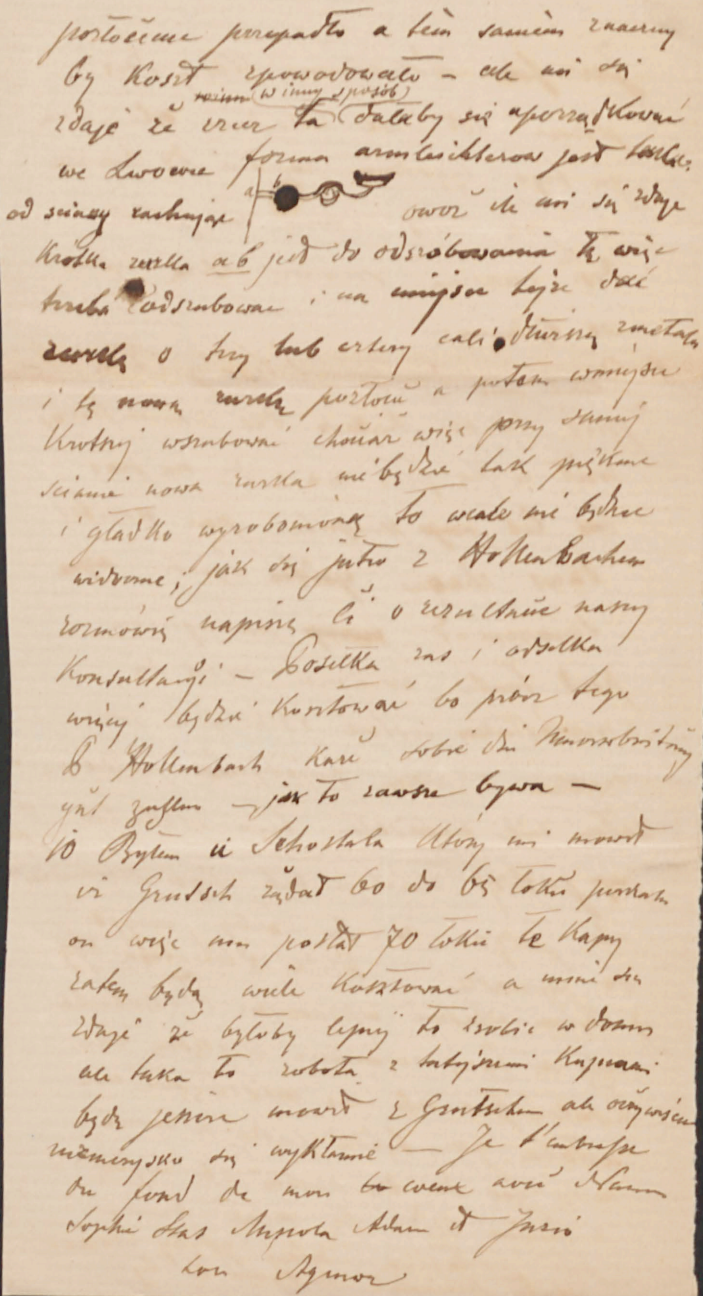 przepadło a tem samem znaczny
by koszt spowodowało – ale mi się
w inny sposób
zdaje że ta dałaby się uporządkować
we Lwowie forma jest
a b
od ściany owoż ile mi się zdaje
krótka rurka ab jest do odśróbowania tę więc
trzeba odszrubować i na miejsce tejże dać
rurkę o trzy lub cztery cali dłuższą z metalu
i tę nową rurkę pozłocić a potem w miejsce
krótkiej wszrubować chociaż więc przy samej
ścianie nowa rurka nie będzie tak piękne
i gładko wyrobioną to wcale nie będzie
widoczne, jak się jutro z Hollenbachem
rozmówię napiszę Ci o rezultacie naszej
konsultacyi – Posełka zaś i odsełka
więcej będzie kosztować bo prócz tego
P Hollenbach każe sobie die
gut zahlen – jak to zawsze bywa –
10 Byłem u Schostala który mi mówił
iż Grutsch żądał 60 do łokci
on więc mu posłał 70 łokci te kapy
zatem będą wiele kosztować a mnie się
zdaje że byłoby lepiej to zrobić w domu
ale taka to robota z tutejszemi kupcami
będę jeszcze mówił z Grutschem ale oczywiście
się wykłamie – Je t'embrasse
du fond de mon coeur avec
Sophie Stas Adam et Juzio
ton